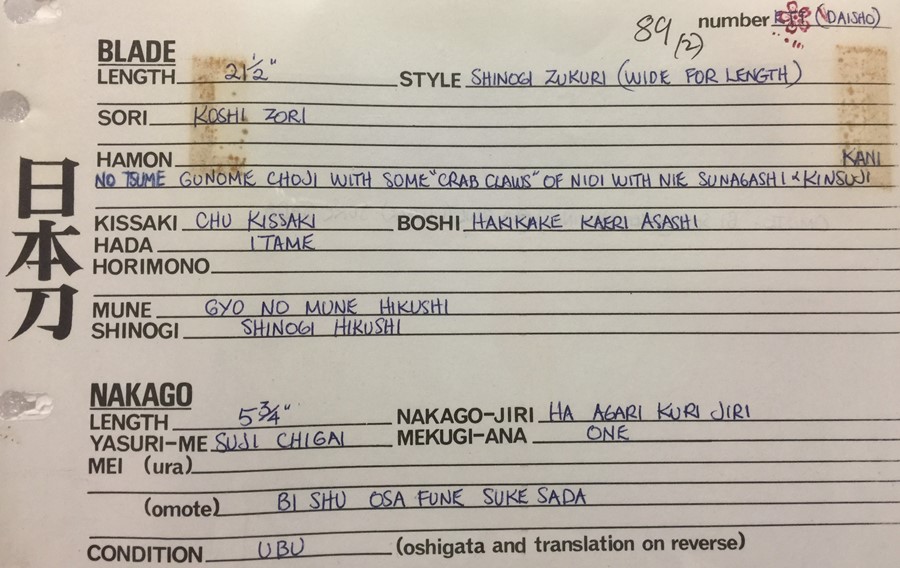 89 (2) number (DAISHO)
BLADE
LENGTH 21½" STYLE SHINOGI ZUKURI (WIDE FOR LENGTH)
SORI KOSHI ZORI
HAMON KANI
NO TSUME GUNOME CHOJI WITH SOME "CRAB CLAWS" OF NIOI WITH NIE SUNAGASHI & KINSUJI
KISSAKI CHU KISSAKI BOSHI HAKIKAKE KAERI ASASHI
HADA ITAME
HORIMONO
MUNE GYO NO MUNE HIKUSHI
SHINOGI SHINOGI HIKUSHI
日本刀
NAKAGO
LENGTH 5¾" NAKAGO-JIRI HA AGARI KURI JIRI
YASURI-ME SUJI CHIGAI MEKUGI-ANA ONE
MEI (ura)
(omote) BI SHU OSA FUNE SUKE SADA
CONDITION UBU (oshigata and translation on reverse)